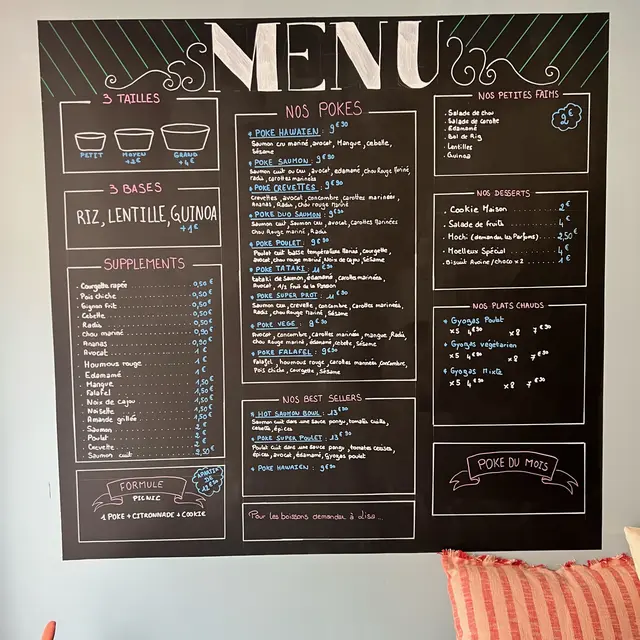 MENU
3 TAILLES
PETIT MOYEN GRAND
+2€ +4€
3 BASES
RIZ, LENTILLE, QUINOA
+1€
SUPPLEMENTS
Courgette rapée 0,50€
Pois chiche 0,50€
Oignon frit 0,50€
Cebette 0,50€
Radis 0,50€
Chou mariné 0,50€
Ananas 0,50€
Avocat 1€
Houmous rouge 1€
Edamamé 1€
Mangue 1,50€
Falafel 1,50€
Noix de cajou 1,50€
Noisette 1,50€
Amande grillée 1,50€
Saumon 2€
Poulet 2€
Crevette 2€
Saumon cuit 2,50€
FORMULE
PICNIC
A PARTIR DE
1 POKE + CITRONNADE + COOKIE
NOS POKES
POKE HAWAIEN : 9€90
Saumon cru mariné, avocat, Mangue, cebette,
Sésame
POKE SAUMON : 9€90
Saumon cuit ou cru, avocat, edamamé, chou Rouge mariné,
radis, carottes marinées
POKE CREVETTES : 9€90
Crevettes, avocat, concombre, carottes marinées,
Ananas, Radis, chou rouge mariné
POKE DUO SAUMON : 9€90
Saumon cuit, Saumon cru, avocat, carottes Marinées
Chou Rouge mariné, Radis
POKE POULET : 9€90
Poulet cuit basse température Mariné, courgette,
avocat, chou rouge mariné, Noix de cajou, Sésame
POKE TATAKI : 11€90
tataki de Saumon, édamamé, carottes marinées,
Avocat, 1/2 fruit de la Passion
POKE SUPER PROT : 11€90
Saumon cru, crevette, concombre, Carottes marinées,
Radis, Chou Rouge Mariné, Sésame
POKE VEGE : 8€90
Avocat, concombre, carottes marinées, mangue, Radis,
Chou Rouge mariné, édamamé, cebette, Sésame
POKE FALAFEL : 9€90
Falafel, houmous rouge, carottes marinées, concombre,
Pois chiche, courgette, Sésame
NOS BEST SELLERS
HOT SAUMON BOWL : 13€90
Saumon cuit dans une sauce ponzu, tomates cuites,
cebette, épices
POKE SUPER POULET : 13€90
Poulet cuit dans une sauce ponzu, tomates cerises,
épices, avocat, édamamé, Gyozas poulet
POKE HAWAIEN : 9€90
Pour les boissons demander à Lisa...
NOS PETITES FAIMS
Salade de chou
Salade de carotte
Edamamé
Bol de Riz
Lentilles
Quinoa
NOS DESSERTS
Cookie Maison 2€
Salade de fruits 4€
Mochi (demandez les Parfums) 2,50€
Moelleux Spécial
Biscuit Avoine/choco x2 1€
NOS PLATS CHAUDS
Gyozas Poulet
x5 4€90 x8 7€90
Gyozas Végétarien
x5 4€90 x8 7€90
Gyozas Mixte
x5 4€90 x8 7€90
POKE DU MOIS